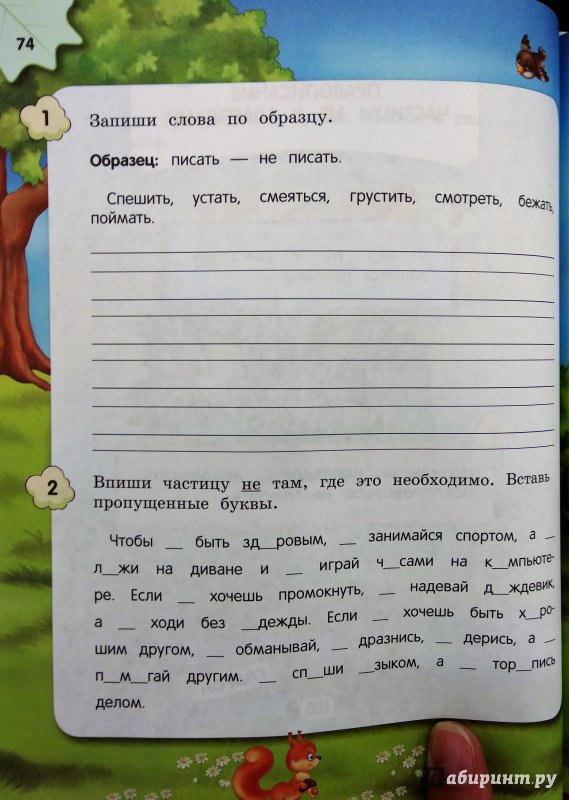 74
1
Запиши слова по образцу.
Образец: писать — не писать.
Спешить, устать, смеяться, грустить, смотреть, бежать,
поймать.
2
Впиши частицу не там, где это необходимо. Вставь
пропущенные буквы.
Чтобы __ быть зд__ровым, __ занимайся спортом, а __
л__жи на диване и __ играй ч__сами на к__мпьюте-
ре. Если __ хочешь промокнуть, __ надевай д__ждевик,
а __ ходи без __дежды. Если __ хочешь быть х__ро-
шим другом, __ обманывай, __ дразнись, __ дерись, а __
п__м__гай другим. __ сп__ши __зыком, а __ тор__пись
делом.
Лабиринт.ру